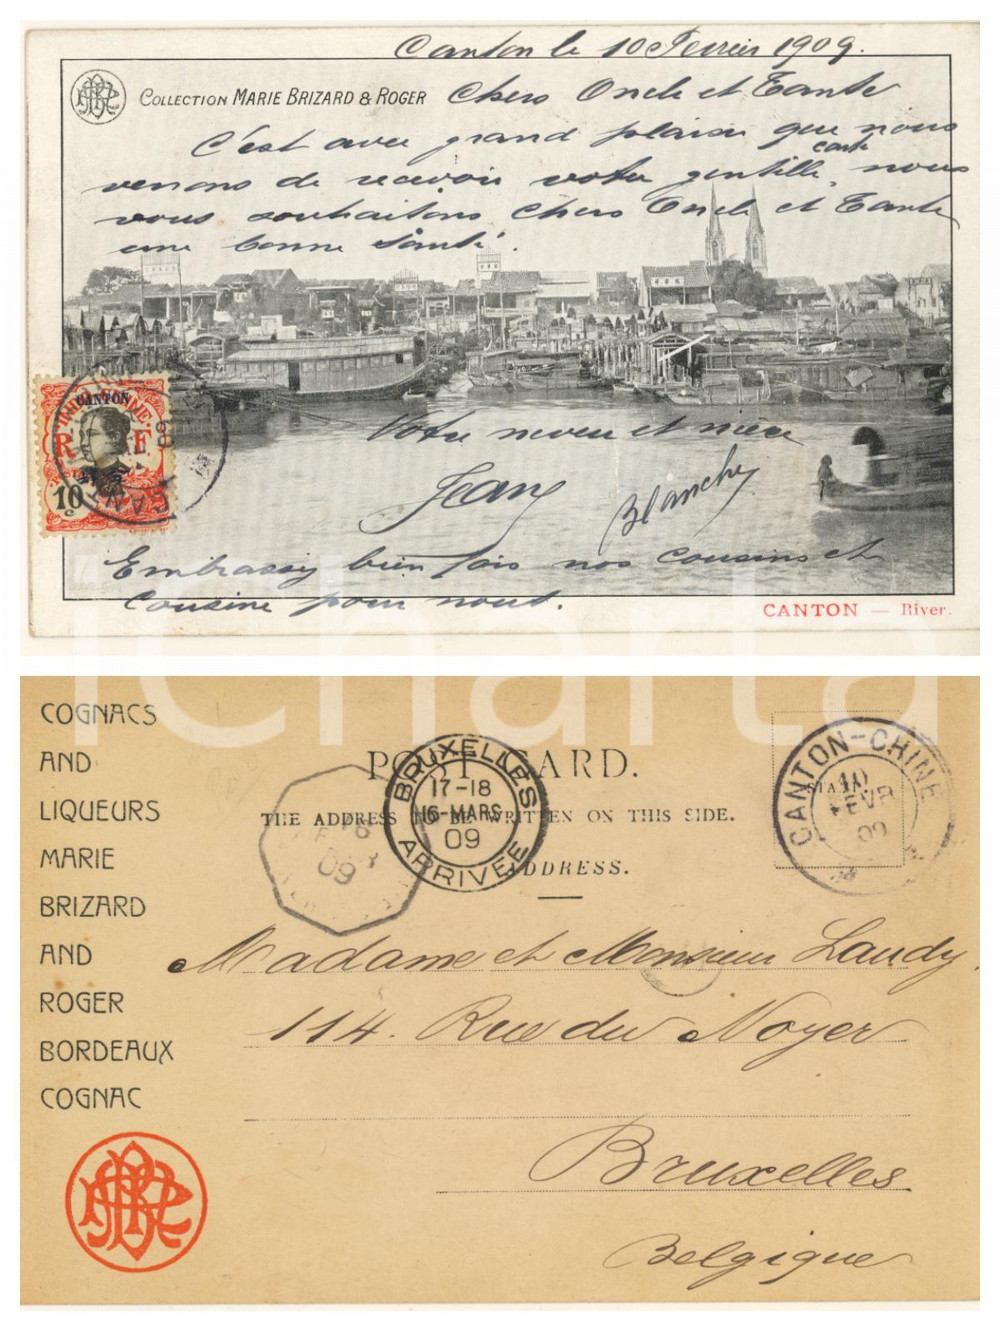 Canton le 10 Fevrier 1909.
COLLECTION MARIE BRIZARD & ROGER
Chers Oncle et Tante
C'est avec grand plaisir que nous
venons de recevoir votre gentille carte, nous
vous souhaitons chers Oncle et Tante
une bonne Santé.
CANTON
INDOCHINE
R F
10 c
CANTON
09
Votre neveu et nièce
Jean
Blanche
Embrassez bien fois nos cousins et
Cousine pour nous.
CANTON — River.
iCharta
COGNACS
AND
LIQUEURS
MARIE
BRIZARD
AND
ROGER
BORDEAUX
COGNAC
POST CARD.
THE ADDRESS TO BE WRITTEN ON THIS SIDE.
ADDRESS.
STAMP
BRUXELLES
17-18
16-MARS
09
ARRIVEE
09
CANTON-CHINE
10
FEVR
09
Madame et Monsieur Laudy,
114. Rue du Noyer
Bruxelles
Belgique